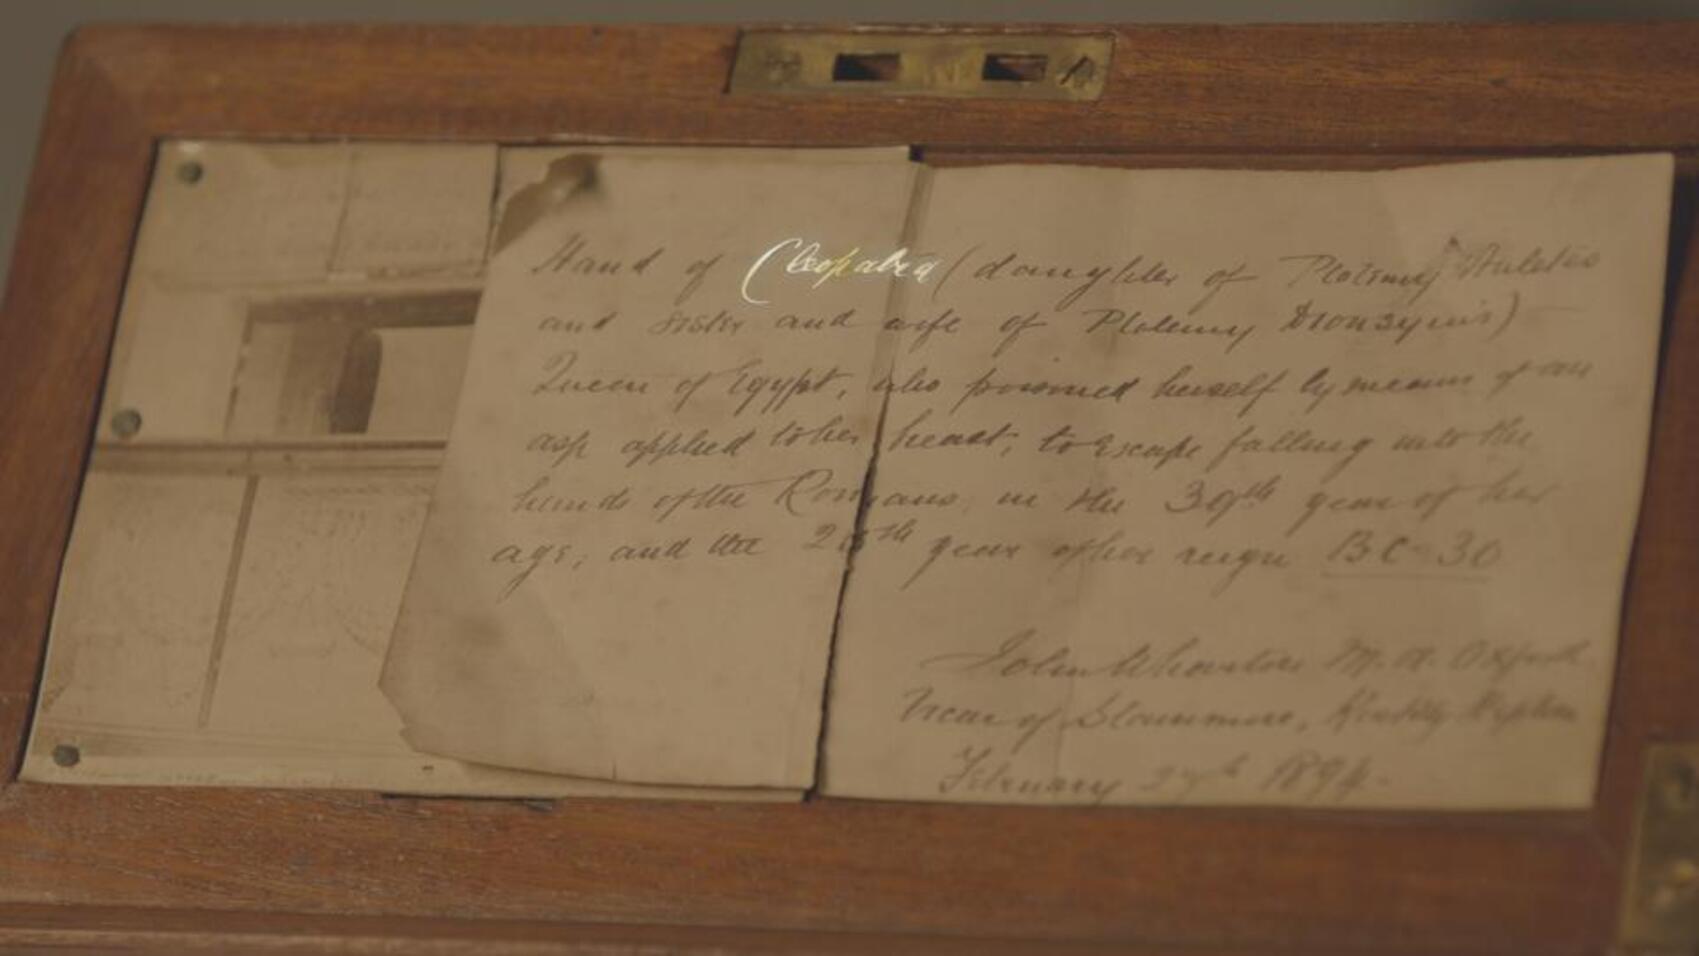 Hand of Cleopatra (daughter of Ptolemy Auletes
and sister and wife of Ptolemy Dionsyius)
Queen of Egypt, who poisoned herself by means of an
asp applied to her heart, to escape falling into the
hands of the Romans, in the 39th year of her
age, and the year of her reign BC 30
John Wharton M.A. Oxford
Vicar of
February 27th 1894.